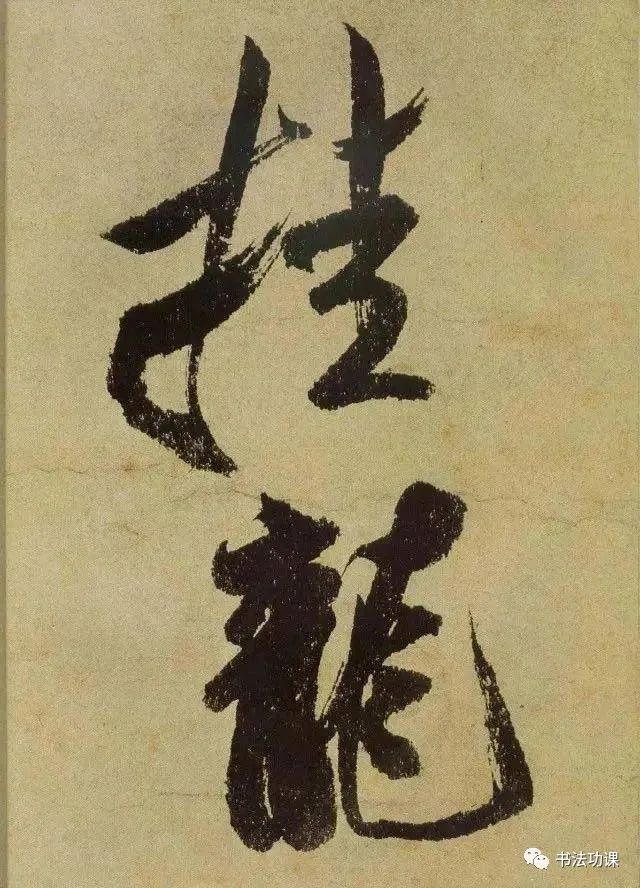 挂龍
书法功课